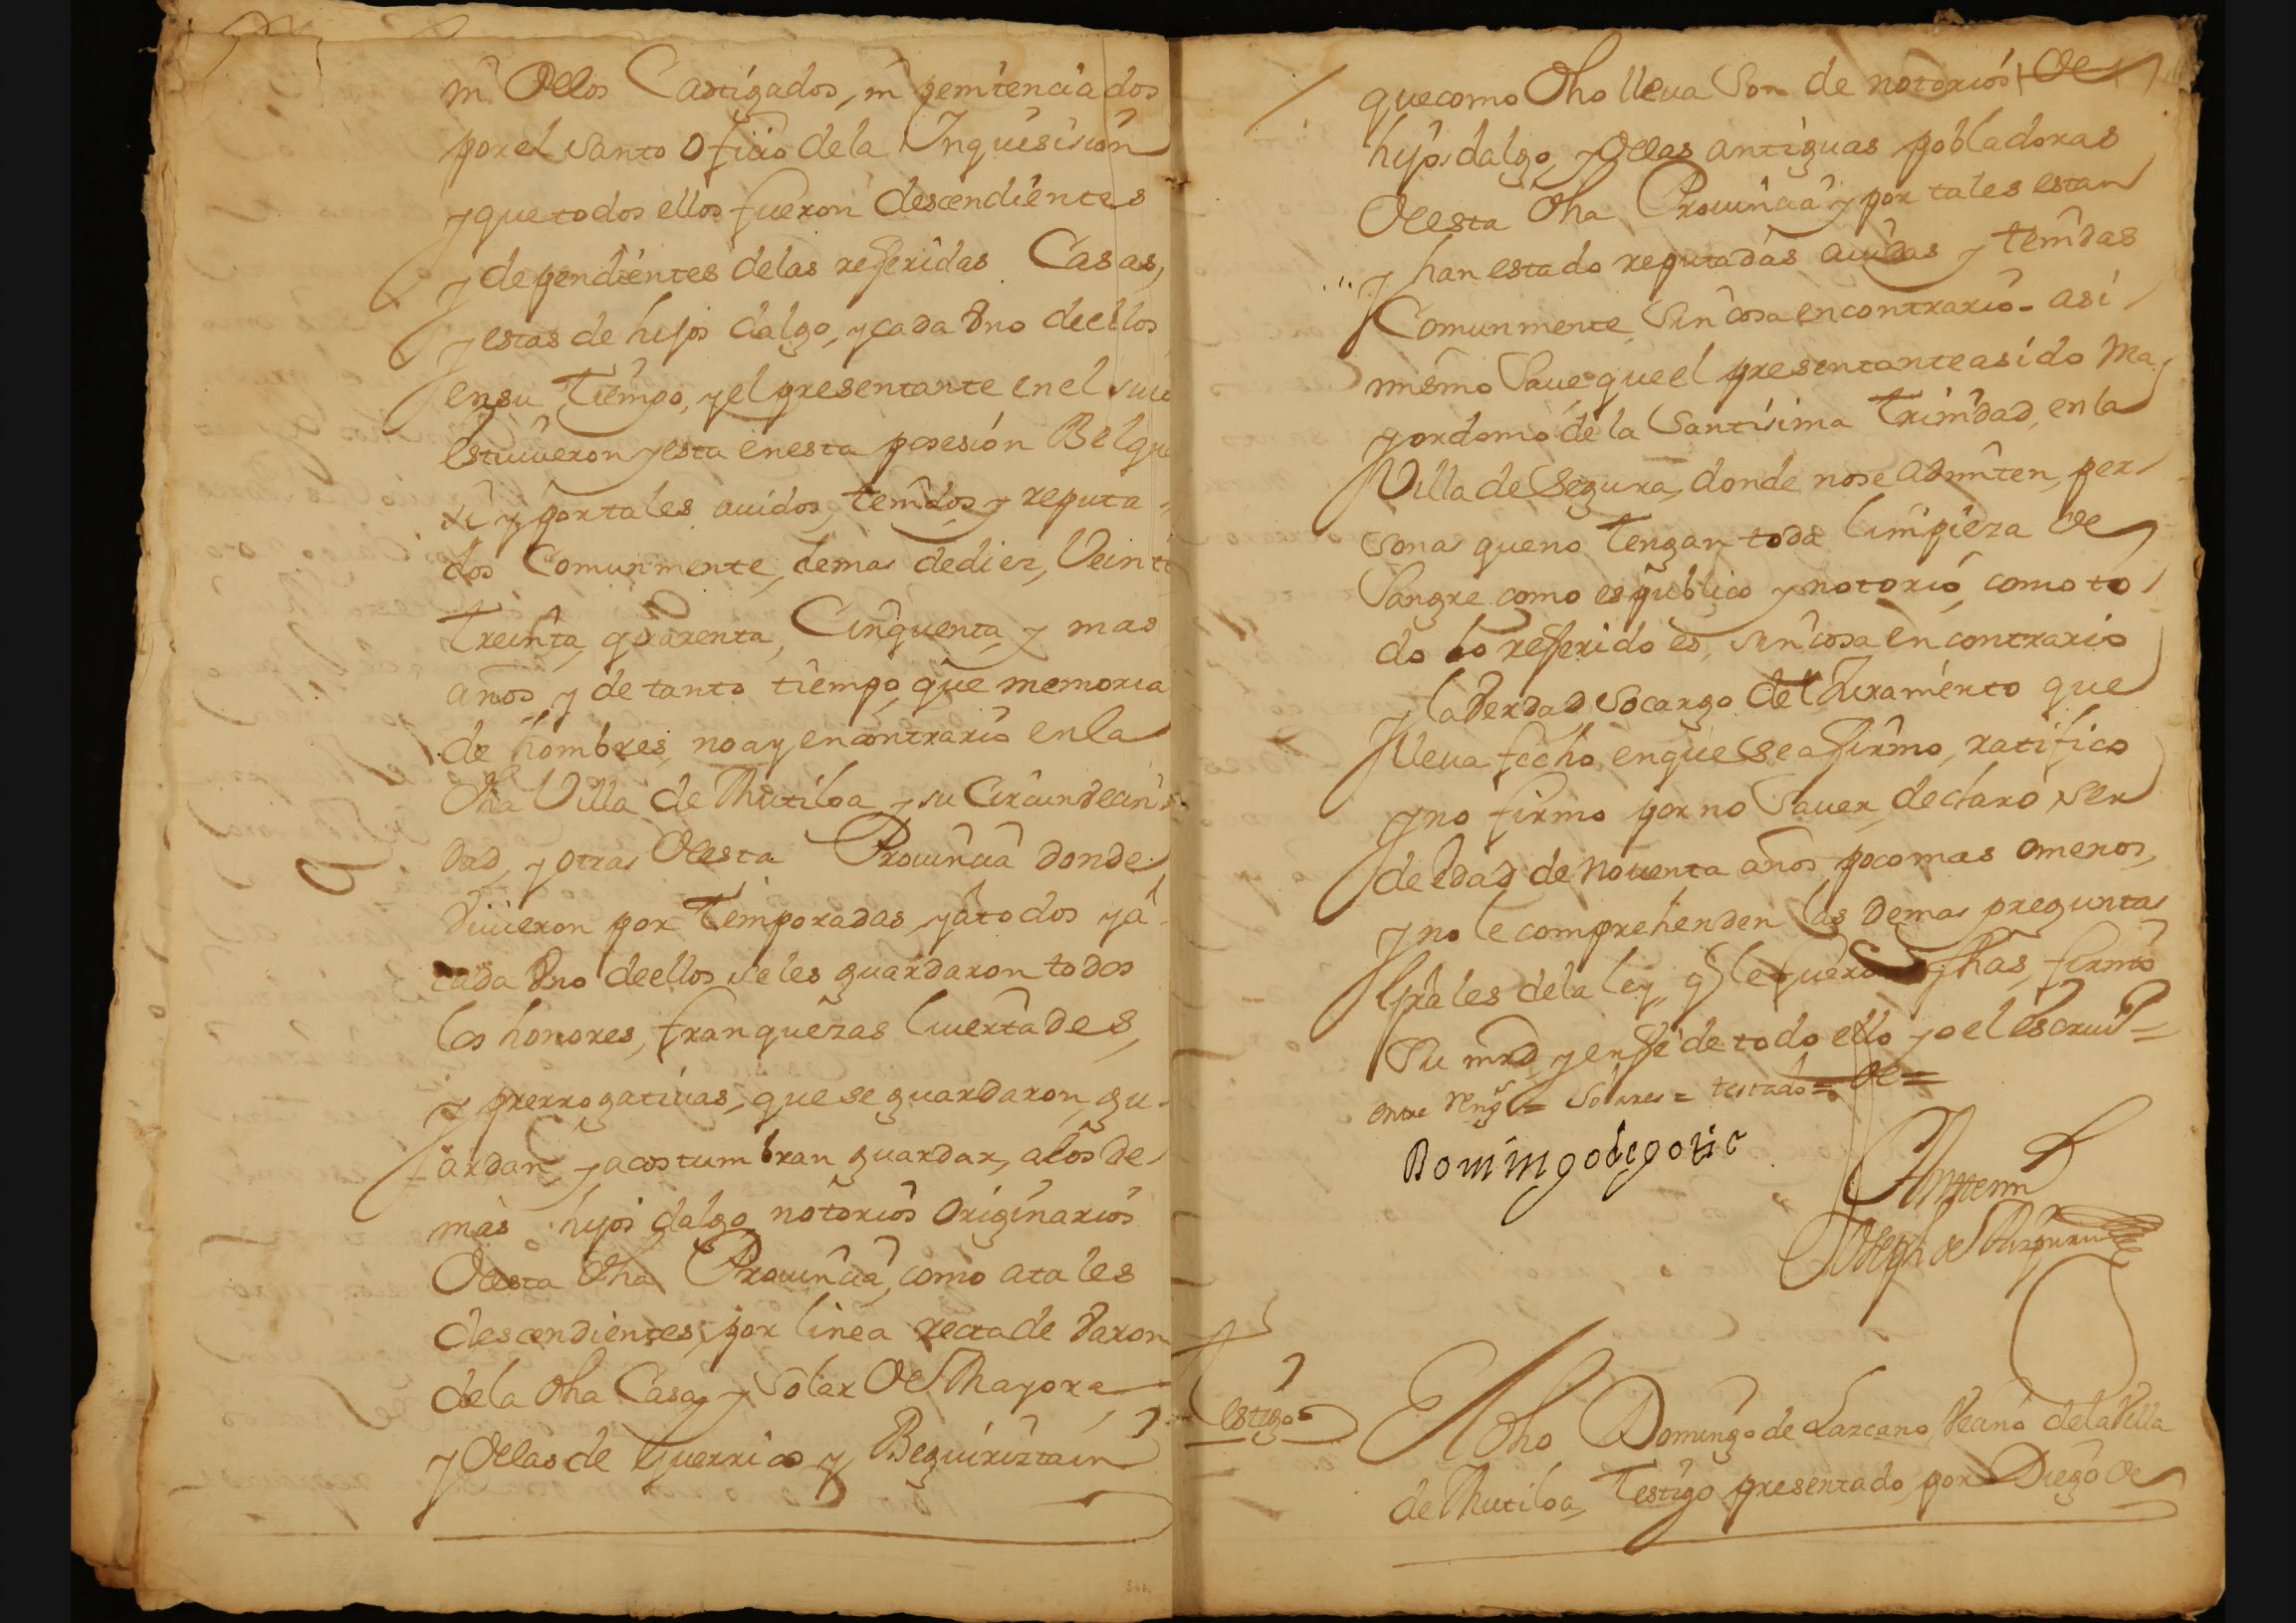 ni dellos Castigados, ni penitenciados
por el Santo Oficio de la Inquisicion
y que todos ellos fueron descendientes
y dependientes de las referidas Casas,
y estas de hijos dalgo, y cada Vno deellos
en su Tiempo, y el presentante en el suio
estuuieron y esta en esta posesion Bel que
si y por tales auidos, tenidos y reputa-
dos Comunmente, demas de diez, Veinte
Treinta, quarenta, Cinquenta, y mas
años, y de tanto tiempo, que memoria
de hombres, no ay encontrario en la
dha Villa de Mutiloa y su Circunvecin
dad, y otras desta Prouincia donde
Viuieron por Temporadas, y à todos y à
cada Vno deellos se les guardaron todos
los honores, franquezas liuertades,
y prerrogatiuas, que se guardaron, gu-
ardan, y acostumbran guardar, a los de
mas hijos dalgo notorios originarios
desta dha Prouincia, como a tales
descendientes, por linea recta de Varon
de la dha Casa, y Solar de Mayora
y dellas de Guerrico y Beguiriztain
que como dho lleua Son de notorios de
hijos dalgo, y dellas antiguas pobladoras
desta dha Prouincia y por tales estan
y han estado reputadas auidas y tenidas
Comunmente, Sin cosa encontrario - asi
mismo Saue que el presentante asido Ma
yordomo de la Santisima Trinidad, en la
Villa de Segura, donde no se admiten, per
sonas que no Tengan toda limpieza de
Sangre como es publico y notorio, como to
do lo referido es, sin cosa encontrario
y la Verdad Socargo del Juramento que
lleua fecho, en que se afirmo, ratifico
y no firmo por no Sauer, declaro ser
de edad de Nouenta años, poco mas omenos,
y no le comprehenden las demas preguntas
Grales de la ley, q le fueron fhas, firmó
Su mrd, y en fe de todo ello yo el escriu.º =
entre Rengs = Solares = testado = de =
Domingo de gorie
Ante mi
Joseph de Aizpuru
Testigo
El dho Domingo de Lazcano, Vecino de la Villa
de Mutiloa, Testigo presentado, por Diego de